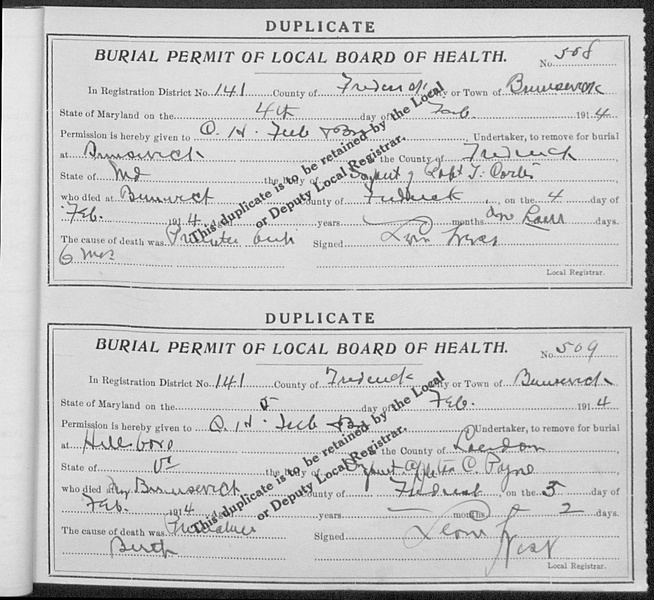 DUPLICATE
BURIAL PERMIT OF LOCAL BOARD OF HEALTH.
No. 508
In Registration District No. 141 County of Frederick City or Town of Brunswick
State of Maryland on the 4th day of Feb. 1914
Permission is hereby given to O. H. Feete & Bro Undertaker, to remove for burial
at Brunswick the County of Frederick
State of Md the body of Infant of Robt T.
who died at Brunswick County of Frederick, on the 4 day of
Feb. 1914 years months days.
The cause of death was Premature birth Signed
6 mos
Local Registrar.
This duplicate is to be retained by the Local
or Deputy Local Registrar.
DUPLICATE
BURIAL PERMIT OF LOCAL BOARD OF HEALTH.
No. 509
In Registration District No. 141 County of Frederick City or Town of Brunswick
State of Maryland on the 5 day of Feb. 1914
Permission is hereby given to O. H. Feete & Bro Undertaker, to remove for burial
at Hillsboro the County of Loudon
State of Va the body of Infant C. Payne
who died at Brunswick County of Frederick, on the 5 day of
Feb. 1914 years — months 2 days.
The cause of death was Premature Signed Leon West
Birth
Local Registrar.
This duplicate is to be retained by the Local
or Deputy Local Registrar.